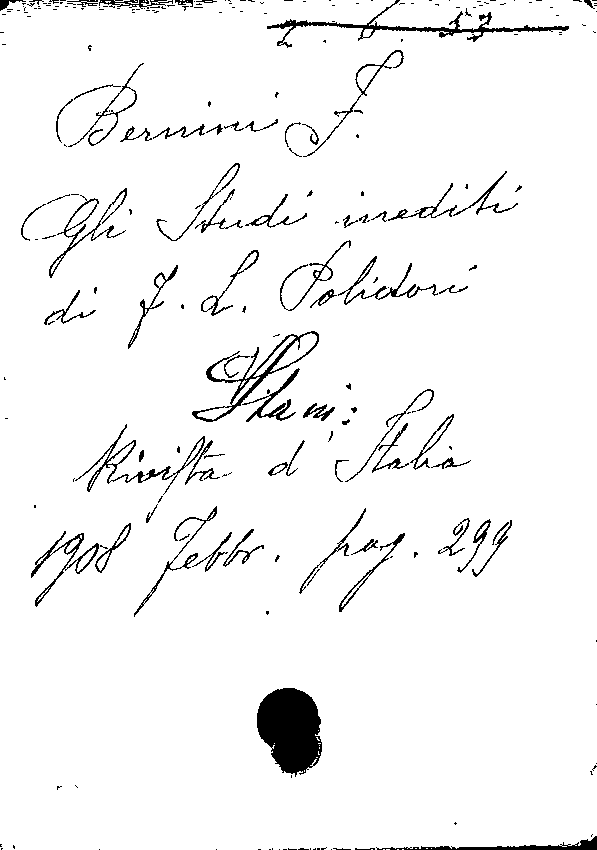 2. 6. 53
Bernini F.
Gli Studi inediti
di F. L. Polidori
Sta in:
Rivista d'Italia
1908 Febbr. pag. 299